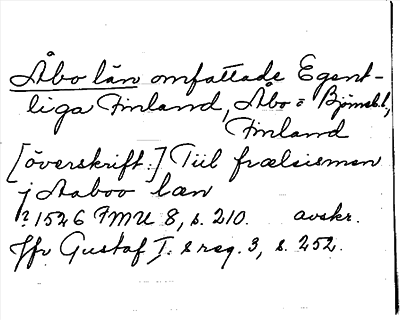 Åbo län omfattade Egent-
liga Finland, Åbo = Björneb.l,
Finland
[överskrift:] Till frælsismen
j Aaboo læn
? 1526 FMU 8, s. 210. avskr.
Jfr Gustaf I. s reg. 3, s. 252.